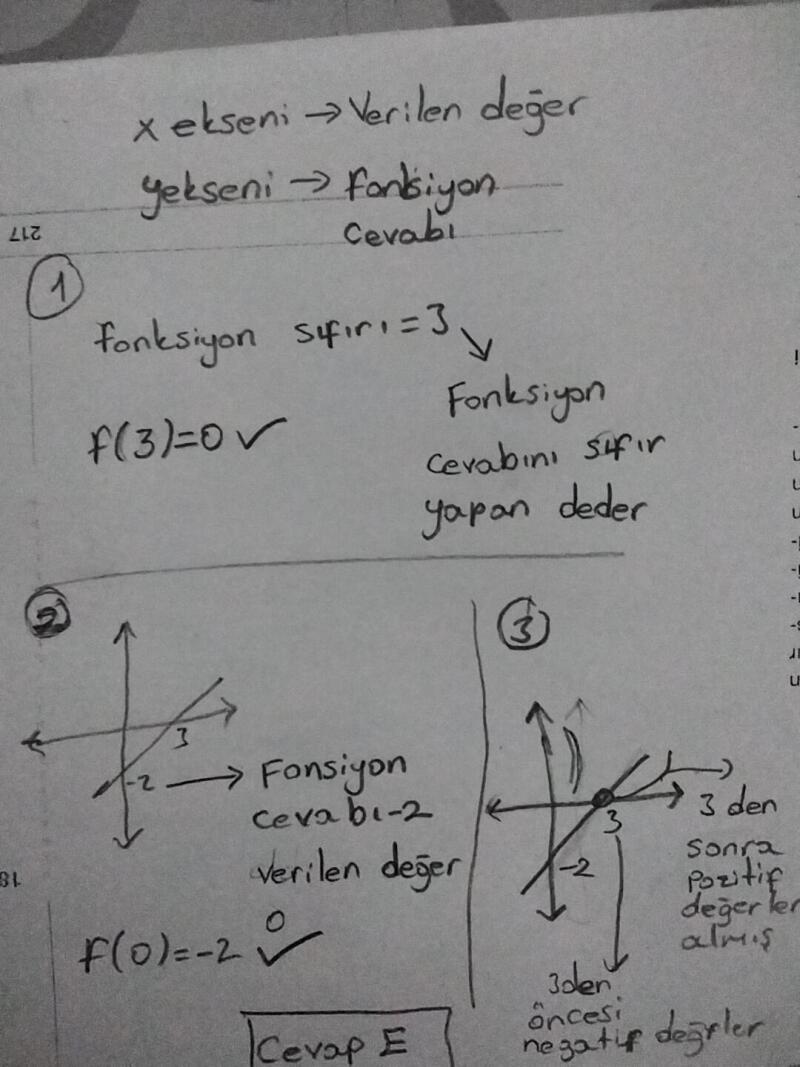 x ekseni → Verilen değer
yekseni → fonksiyon
cevabı
217
1
fonksiyon sıfırı = 3
Fonksiyon
cevabını sıfır
yapan deder
f(3)=0 ✓
2
3
-2 → Fonsiyon
cevabı-2
verilen değer
0
f(0)=-2 ✓
18
3
3
-2
3 den
sonra
pozitif
değerler
almış
3den
öncesi
negatif değrler
Cevap E